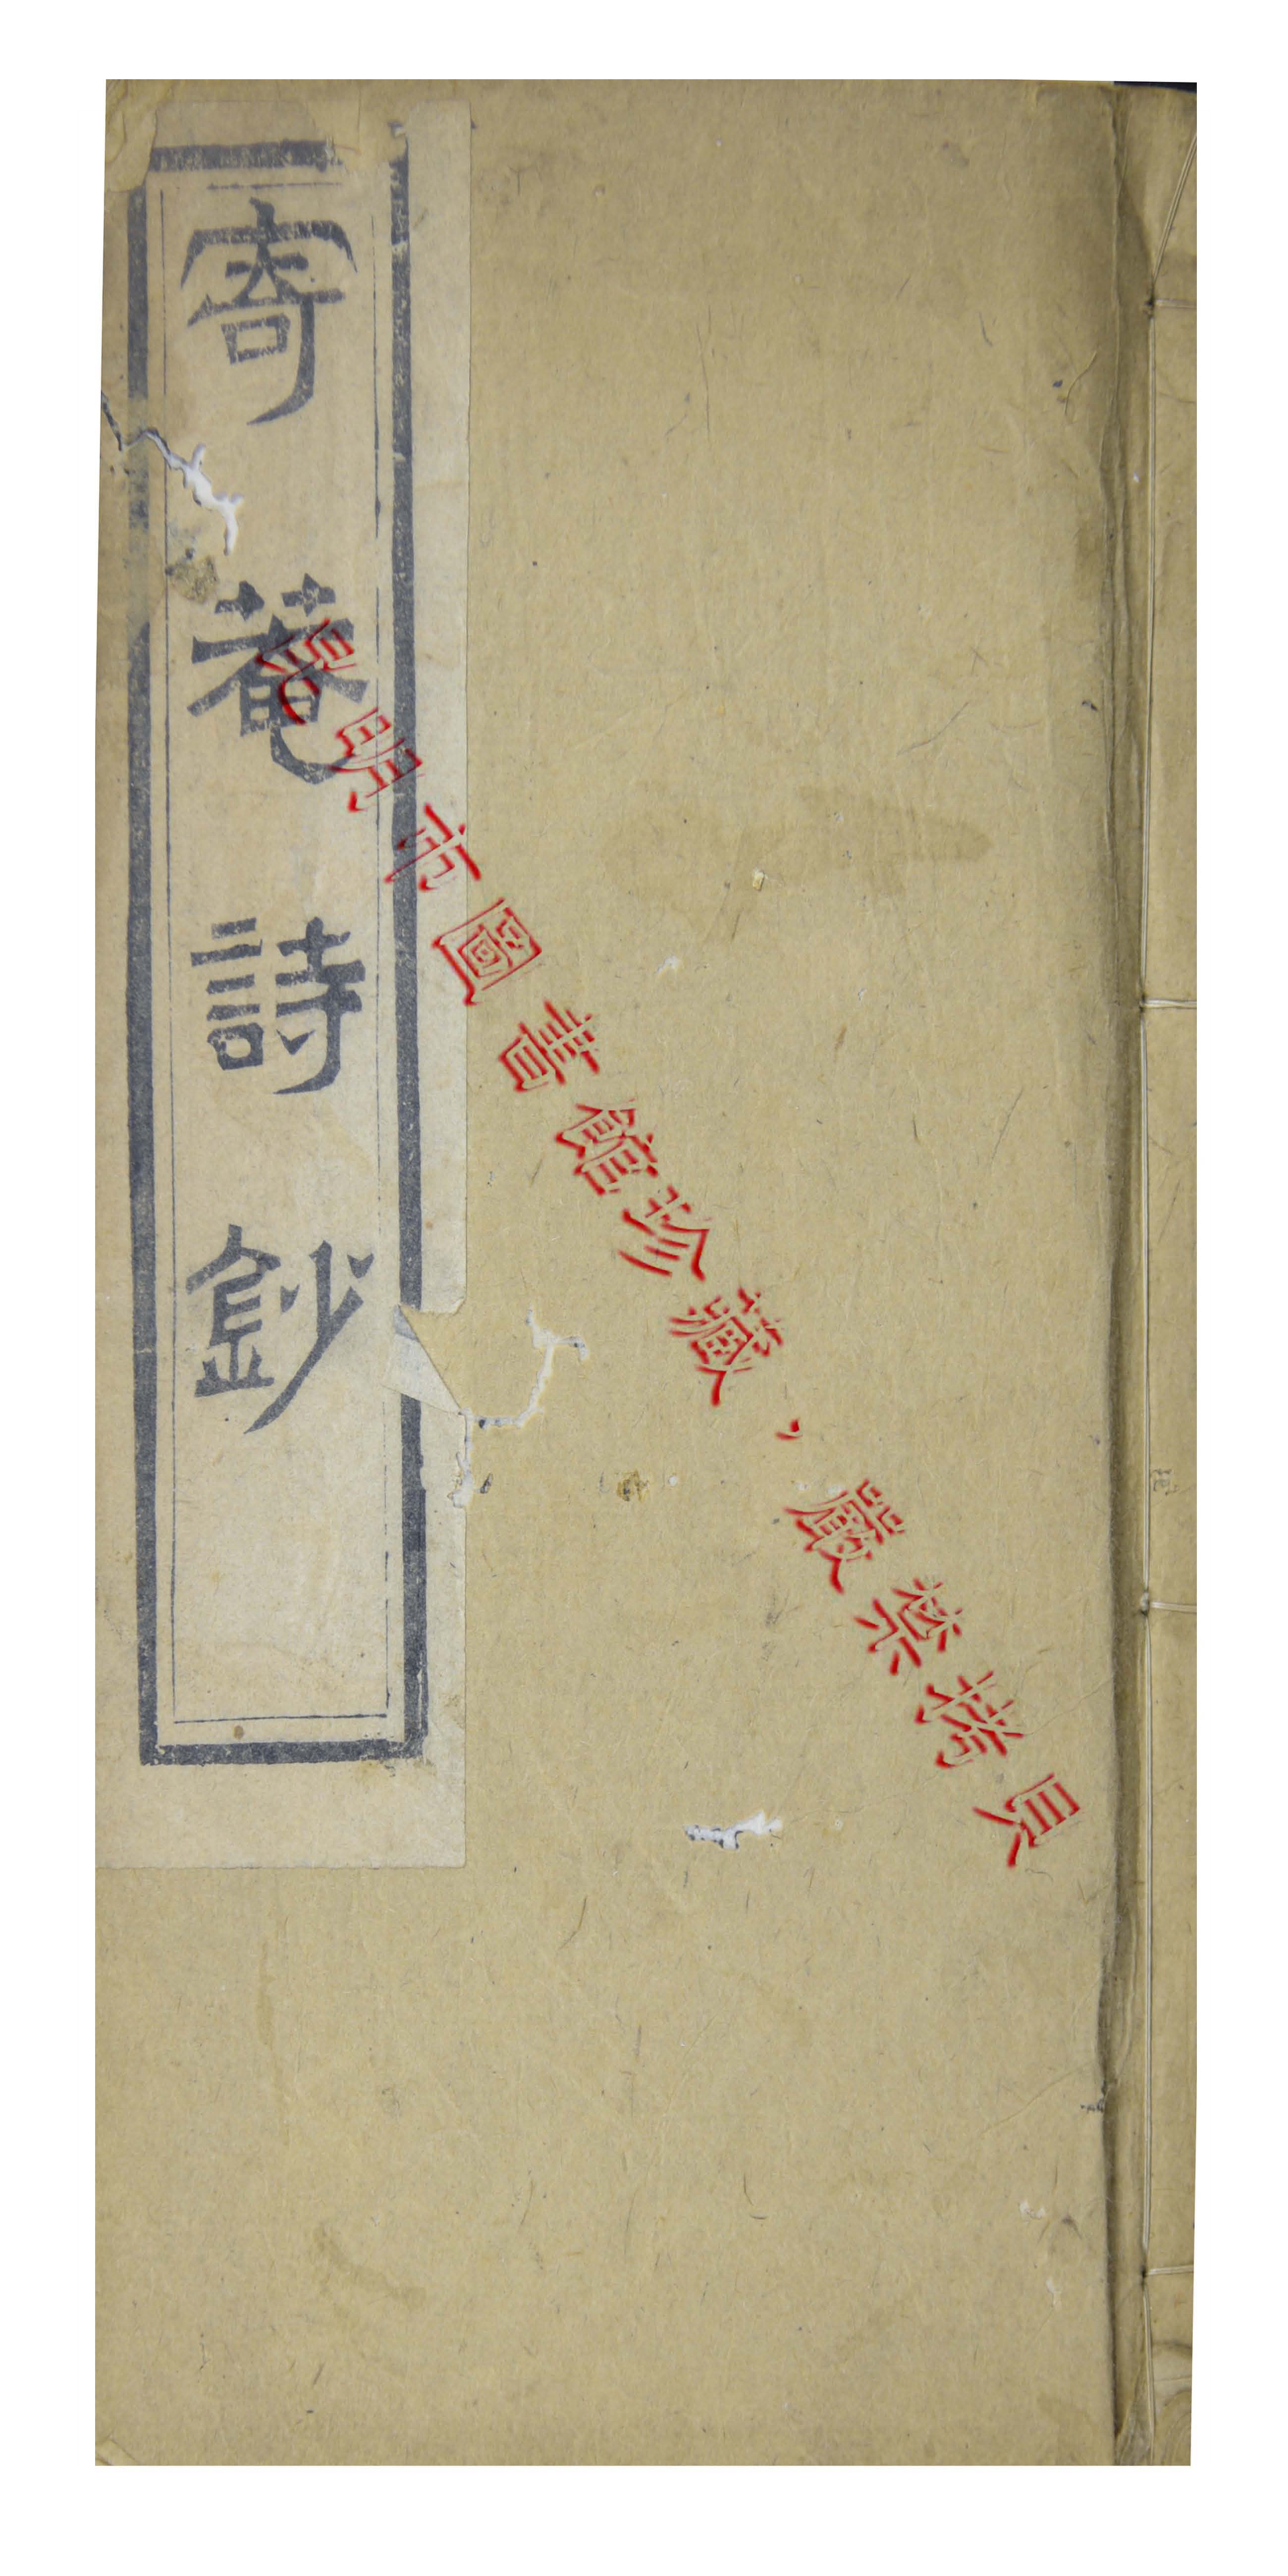 寄菴詩鈔
昆明市圖書館珍藏，嚴禁拷貝